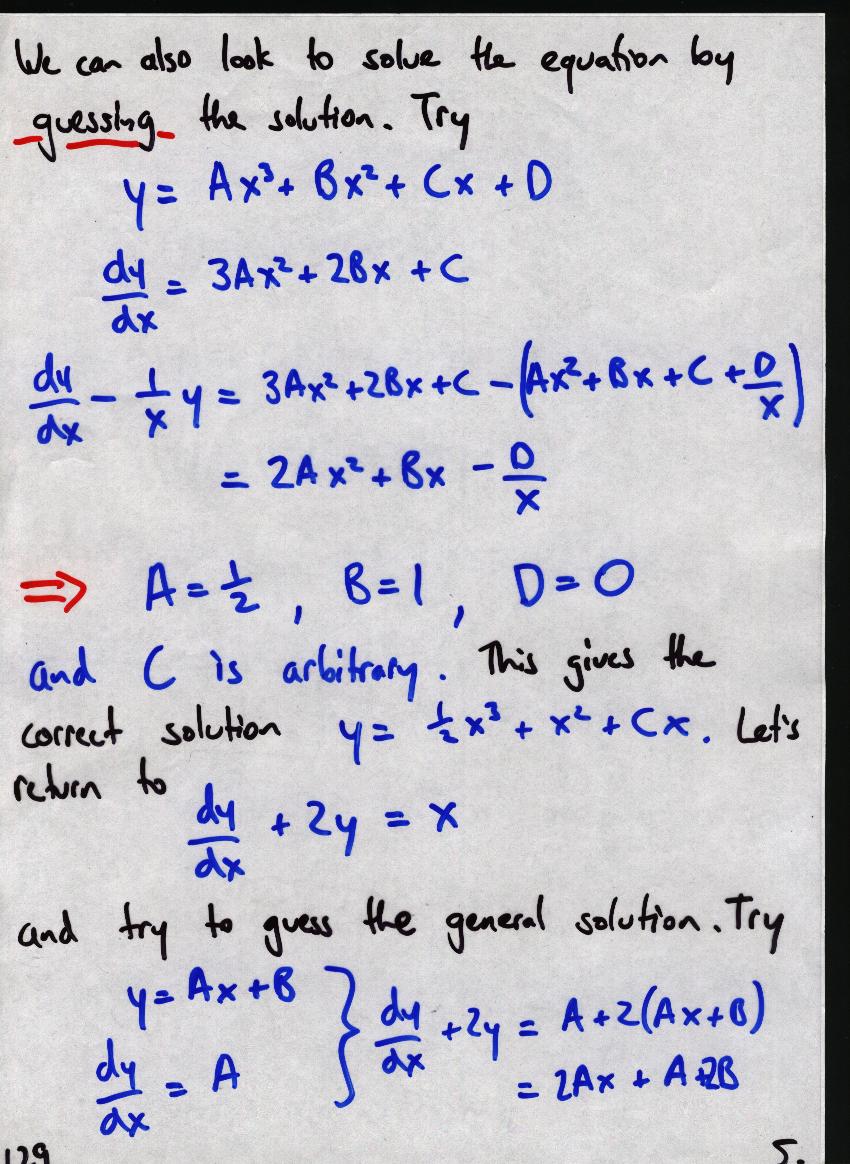 We can also look to solve the equation by
guessing the solution. Try
y = Ax³ + Bx² + Cx + D
dy/dx = 3Ax² + 2Bx + C
dy/dx - 1/x y = 3Ax² + 2Bx + C - (Ax² + Bx + C + D/x)
= 2Ax² + Bx - D/x
⇒ A = 1/2 , B = 1 , D = 0
and C is arbitrary. This gives the
correct solution y = 1/2 x³ + x² + Cx. Let's
return to
dy/dx + 2y = x
and try to guess the general solution. Try
y = Ax + B } dy/dx + 2y = A + 2(Ax + B)
dy/dx = A = 2Ax + A + 2B
129 5.